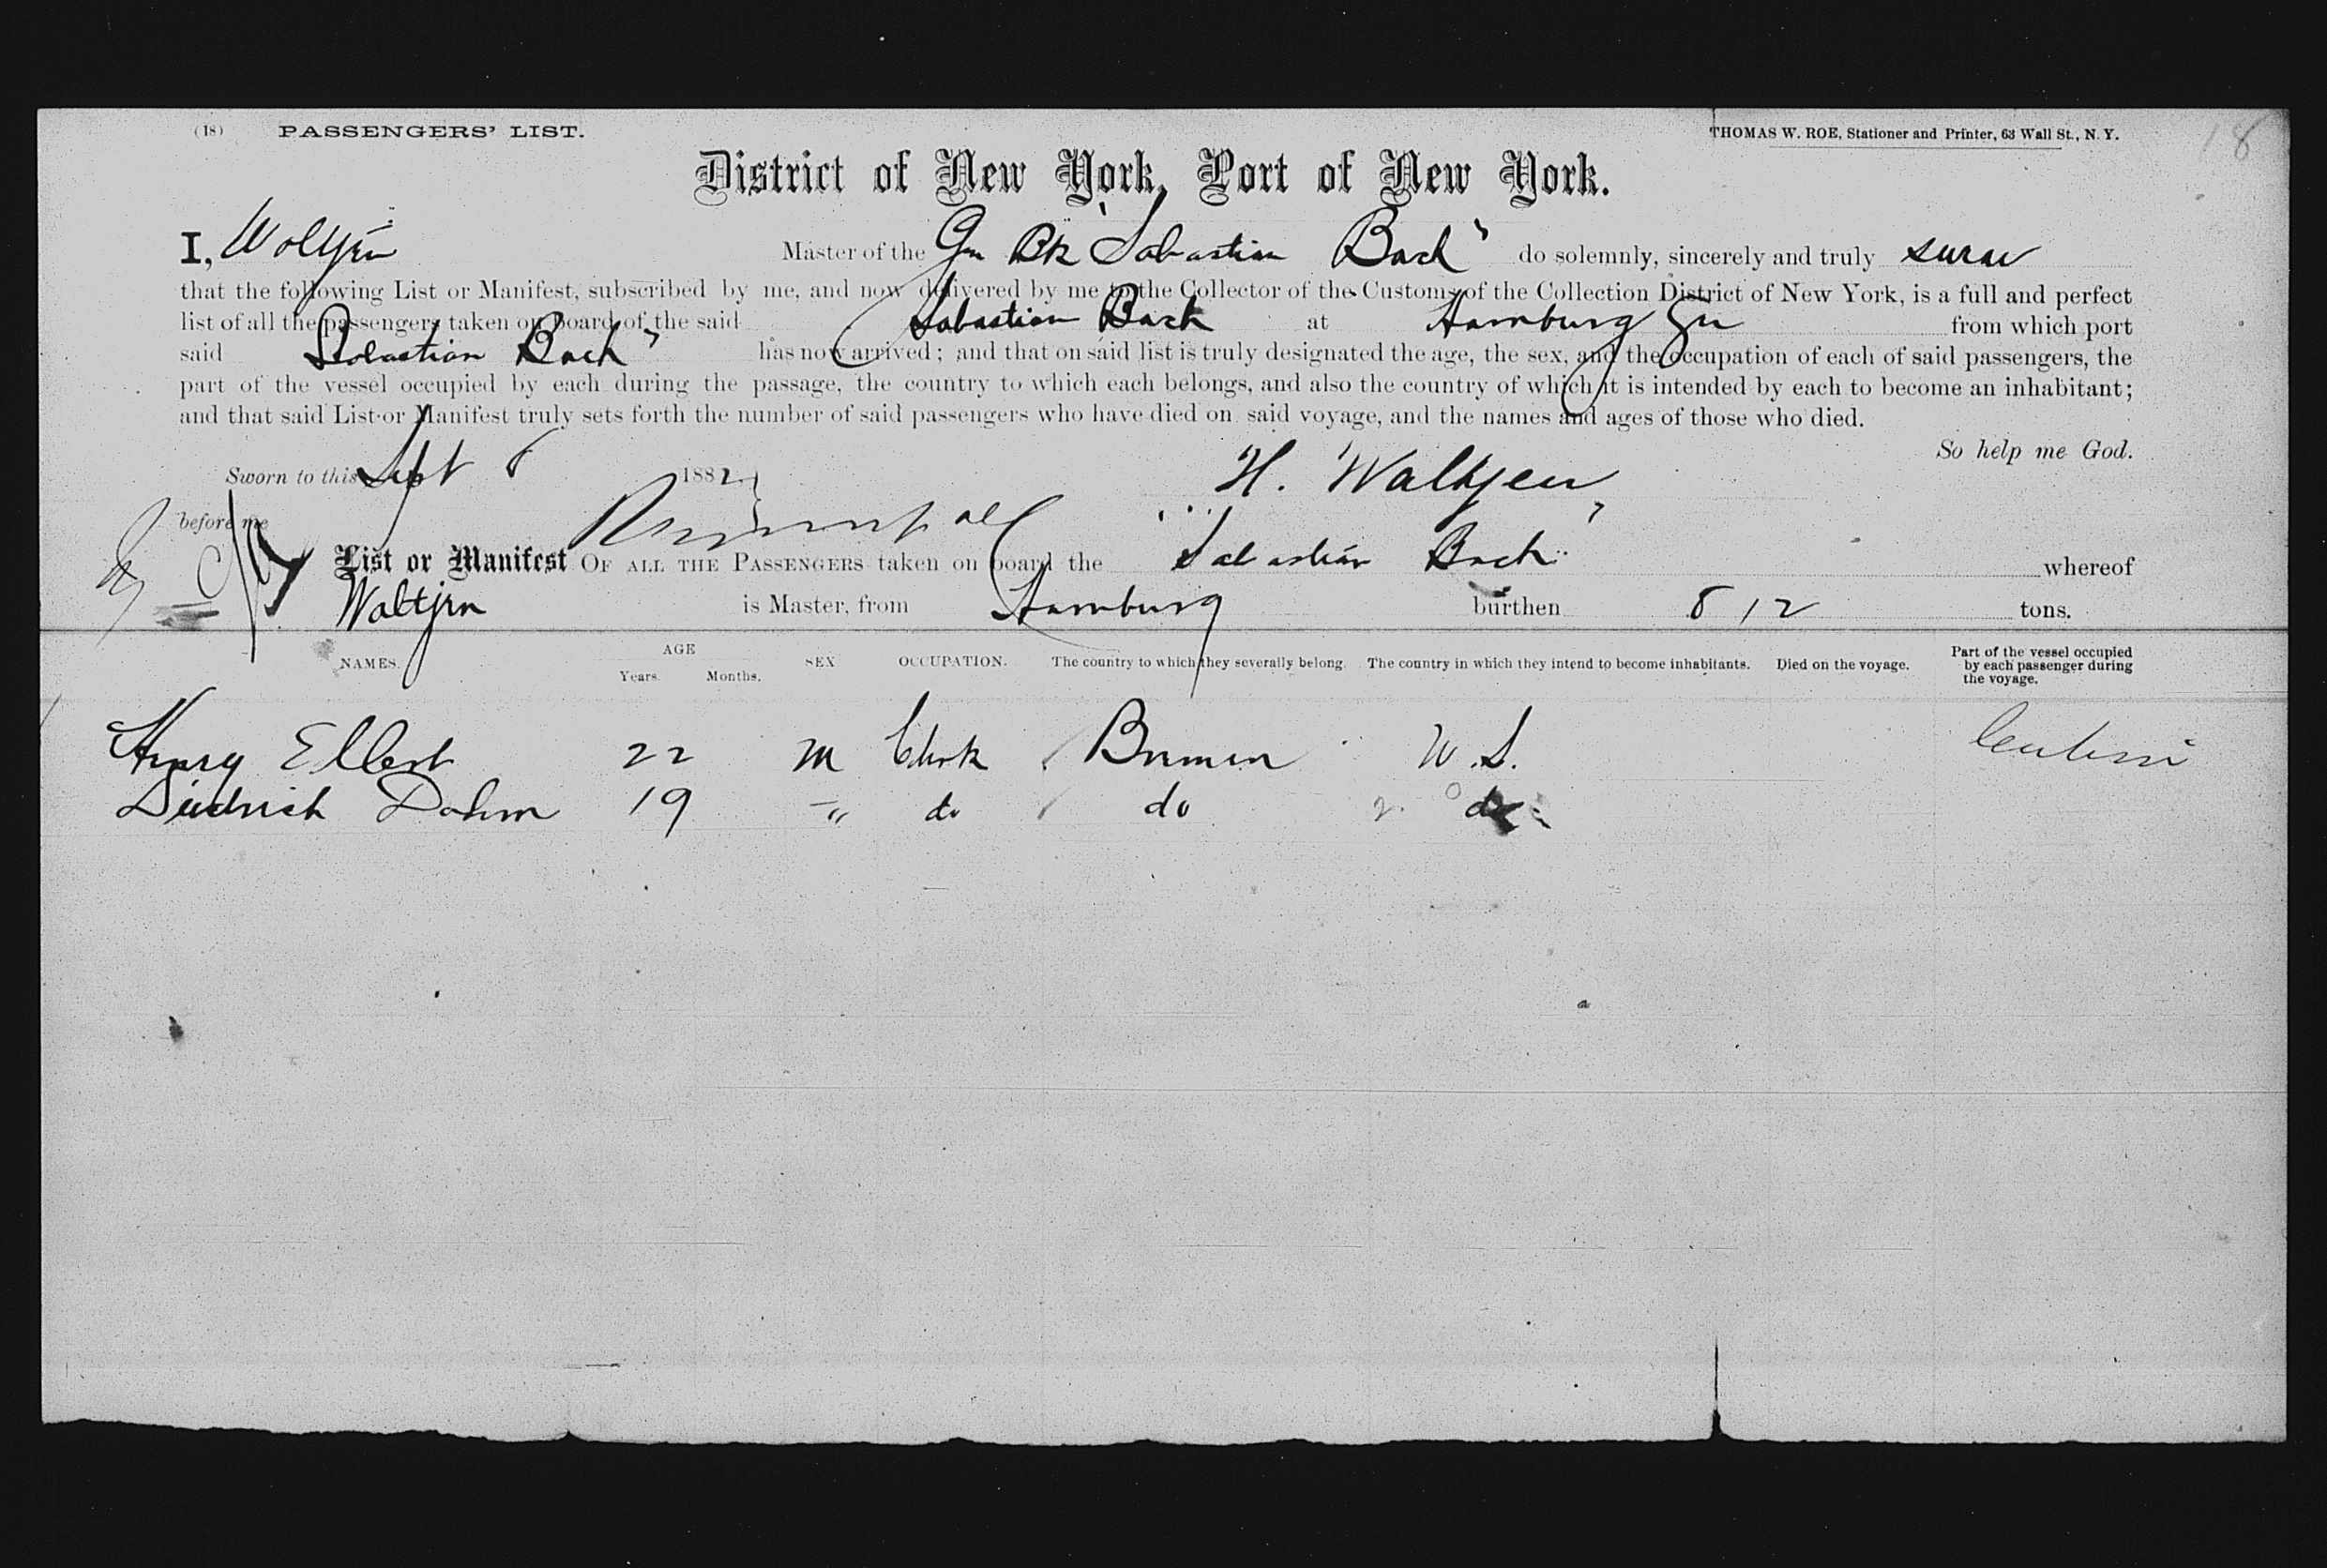 (18) PASSENGERS' LIST. THOMAS W. ROE, Stationer and Printer, 63 Wall St., N. Y. 18
District of New York, Port of New York.
I, Woltjen Master of the Gn Bk "Sabastian Bach" do solemnly, sincerely and truly swear
that the following List or Manifest, subscribed by me, and now delivered by me to the Collector of the Customs of the Collection District of New York, is a full and perfect
list of all the passengers taken on board of the said Sabastian Bach at Hamburg from which port
said Sabastian Bach" has now arrived; and that on said list is truly designated the age, the sex, and the occupation of each of said passengers, the
part of the vessel occupied by each during the passage, the country to which each belongs, and also the country of which it is intended by each to become an inhabitant;
and that said List or Manifest truly sets forth the number of said passengers who have died on said voyage, and the names and ages of those who died.
So help me God.
Sworn to this Sept 8 1882 H. Waltjen
before me
List or Manifest OF ALL THE PASSENGERS taken on board the "Sabastian Bach" whereof
Woltjen is Master, from Hamburg burthen 812 tons.
NAMES. AGE Years. Months. SEX OCCUPATION. The country to which they severally belong. The country in which they intend to become inhabitants. Died on the voyage. Part of the vessel occupied by each passenger during the voyage.
Henry Ellert 22 M Clerk Bremen U.S.
Diedrich Dahm 19 " do do do